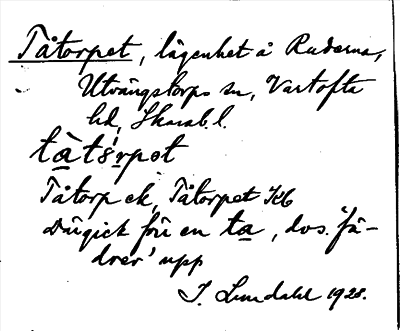 Tåtorpet, lägenhet å Ruderna,
Utvängstorps sn, Vartofta
hd, Skarab.l.
tàtårpət
Tåtorp ek, Tåtorpet Kb
Då gick för en ta, dvs. 'få-
drev' upp
J. Lundahl 1928.